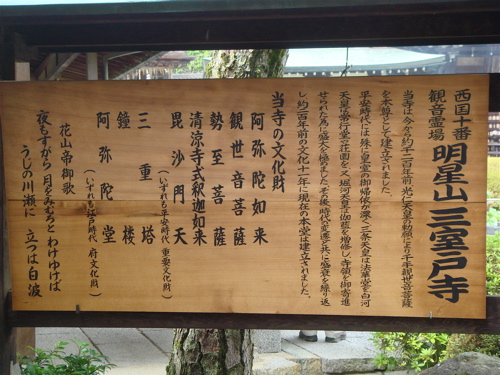 西国十番
観音霊場
明星山三室戸寺
当寺は今から約千二百年前光仁天皇の勅願により千手観世音菩薩
を本尊として建立されました。
平安時代には殊に皇室の御帰依が深く、三条天皇は法華堂を白河
天皇は常行堂の荘園を、又堀河天皇は伽藍を増修し、寺領を御寄進
せられた為に盛大を極めました。その後時代の変遷と共に盛衰を繰り返
し約二百年前の文化十一年に現在の本堂は建立されました。
当寺の文化財
阿弥陀如来
観世音菩薩
勢至菩薩
清涼寺式釈迦如来
毘沙門天
(いずれも平安時代 重要文化財)
三重塔
鐘楼
阿弥陀堂
(いずれも江戸時代 府文化財)
花山帝御歌
夜もすがら 月をみむろと わけゆけば
うじの川瀬に 立つは白波